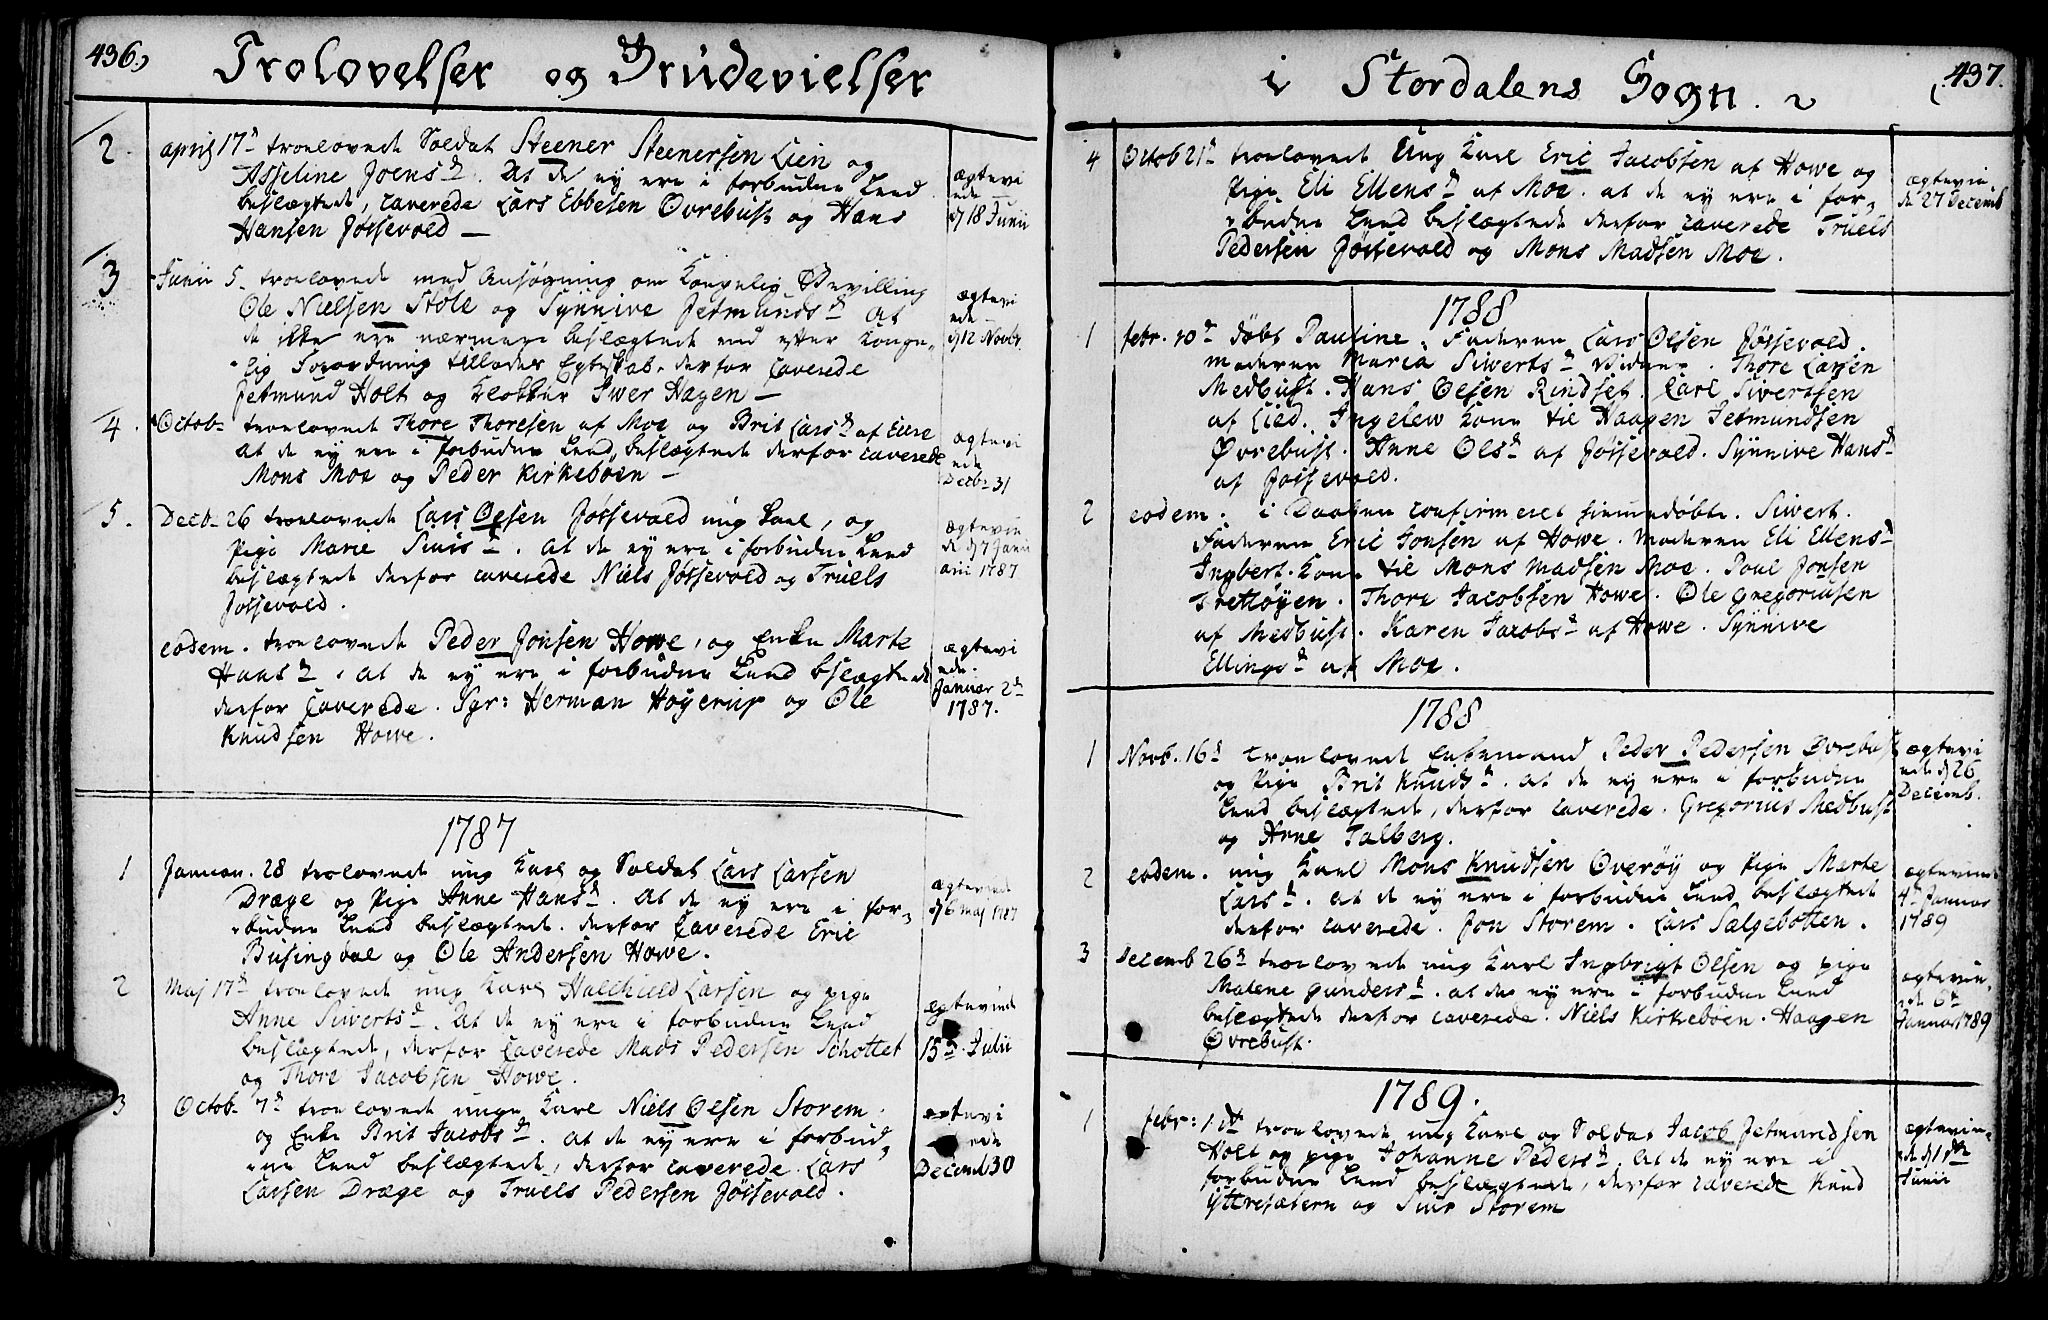 436.
Trolovelser og Brudevielser
2
april 17de troelovede Soldat Steener Steenersen Lien og
Asseline Joensd. At de ej ere i forbudne Leed
beslægtede, caverede Lars Ebbesen Øvrebust og Hans
Hansen Jøssevold —
ægtevi
ede
d 18 Junii
3
Junii 5. troelovede med Ansøgning om Kongelig Bevilling
Ole Nielsen Stole og Synnive Jetmundsd. At
de ikke ere nærmere beslægtede end efter Konge-
lig Forordning tillades Egteskab, derfor caverede
Jetmund Holt og Klokker Iwer Hagen —
ægtevi
ede
d 12 Novbr.
4.
Octob- troelovede Thore Thoresen af Moe og Brit Larsd. af
At de ej ere i forbudne Leed beslægtede derfor caverede
Mons Moe og Peder Kirkebøen —
ægtevi
ede
Decbr 31
5.
Decb- 26 troelovede Lars Olsen Jøssevold ung karl, og
Pige Marie Siursd. At de ej ere i forbudne Leed
beslægtede derfor caverede Niels Jøssevold og Truels
Jøssevold.
ægtevie
de d 7 Janu
arii 1787
eodem. troelovede Peder Jonsen Howe, og Enke Marte
Hansd. At de ej ere i forbudne Leed beslægtede
derfor caverede. Sgr: Herman Høyerup og Ole
Knudsen Howe.
ægtevi
ede.
Januar 2de
1787.
1787
1
Januar. 28 trolovede ung Karl og Soldat Lars Larsen
Dræge og Pige Anne Hansd. At de ej ere i for-
budne Leed beslægtede. derfor Caverede Eric
Busingdal og Ole Andersen Howe.
ægtevied
d 6 maj 1787
2
Maj 17de troelovede ung Karl Hallkield Larsen og pige
Anne Siwertsd. At de ej ere i forbudne Leed
beslægtede, derfor caverede Mads Pedersen Schottet
og Thore Jacobsen Howe.
ægteviede
15de Julii
3
Octob. 7de troelovede unge Karl Niels Olsen Storem.
og Enke Brit Jacobsd. At de ej ere i forbud-
ene Leed beslægtede, derfor caverede Lars
Larsen Dræge og Truels Pedersen Jøssevold.
ægtevi
ede
Decemb 30
i Stordalens Sogn.
437.
4
Octob 21de troelovede Ung Karl Eric Jacobsen af Howe og
Pige Eli Ellensd. af Moe. at de ej ere i for-
budne Leed beslægtede derfor caverede Truels
Pedersen Jøssevold og Mons Madsen Moe.
ægtevie
de 27 Decemb
1788
1
febr. 10de døbt Pauline. Faderen Lars Olsen Jøssevold.
moderen Maria Siwertsd. Vidner. Thore Larsen
Medbust. Hans Olsen Rindset. Carl Sivertsen
af Lied. Ingelew kone til Haagen Jetmundsen
Øvrebust. Anne Olsd. af Jøssevold. Synnive Hansd.
af Jøssevold.
2
eodem. i Daaben confirmeret hiemmedøbte. Siwert.
Faderen Eric Jonsen af Howe. Moderen Eli Ellensd.
Ingbert. Kone til Mons Madsen Moe. Poul Jonsen
Brettøyen. Thore Jacobsen Howe. Ole Gregoriusen
af Medbust. Karen Jacobsd. af Howe. Synnive
Ellingsd. af Moe.
1788
1
Novb. 16de troelovede Enkemand Peder Pedersen Øvrebust
og Pige Brit Knudsd. At de ej ere i forbudne
Leed beslægtede, derfor caverede. Gregorius Medbust
og Arne Talberg.
ægtevi
ede d 26
Decemb.
2
eodem. ung Karl Mons Knudsen Overøy og Pige Marte
Larsd. At de ej ere i forbudne Leed beslægtede
derfor caverede. Jon Storem. Lars Salgebotten.
ægteviede
4de Januar
1789
3
Decemb 26de troelovede ung Karl Ingbrigt Olsen og pige
Malene Gundersd. at de ej ere i forbudne Leed
beslægtede derfor caverede. Niels Kirkebøen. Haagen
Øvrebust.
ægtevie-
de 6te
Januar 1789
1789.
1
febr: 1ste troelovede ung Karl og Soldat Jacob Jetmundsen
Holt og pige Johanne Pedersd. At de ej ere i
forbudne Leed beslægtede, derfor caverede Knud
Yttresætern og Siur Storem
ægtevie-
de d 1ste
Junii